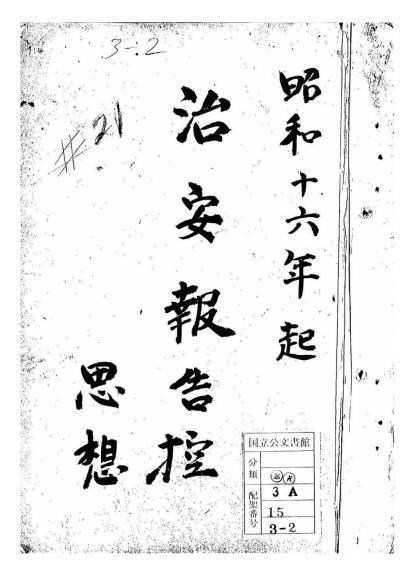 3-2
#21
昭和十六年起
治安報告控
思想
国立公文書館
分類
返赤
3 A
配架番号
15
3-2